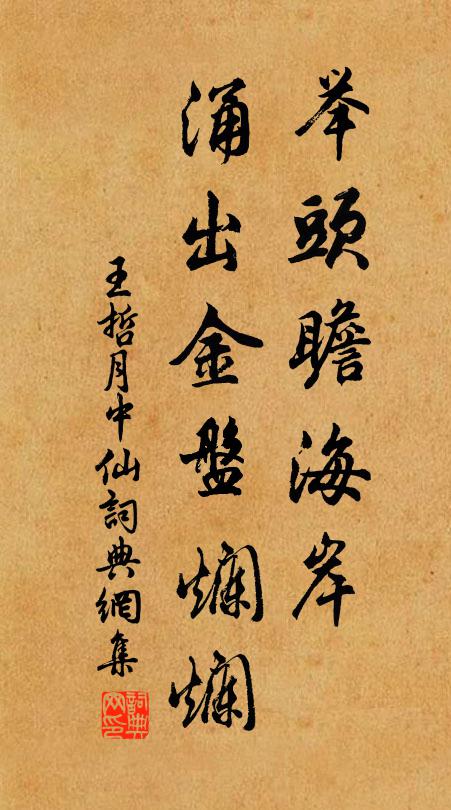 举頭瞻海岸
涌出金盤爛爛
王哲月中仙詞典網集
詞典网印